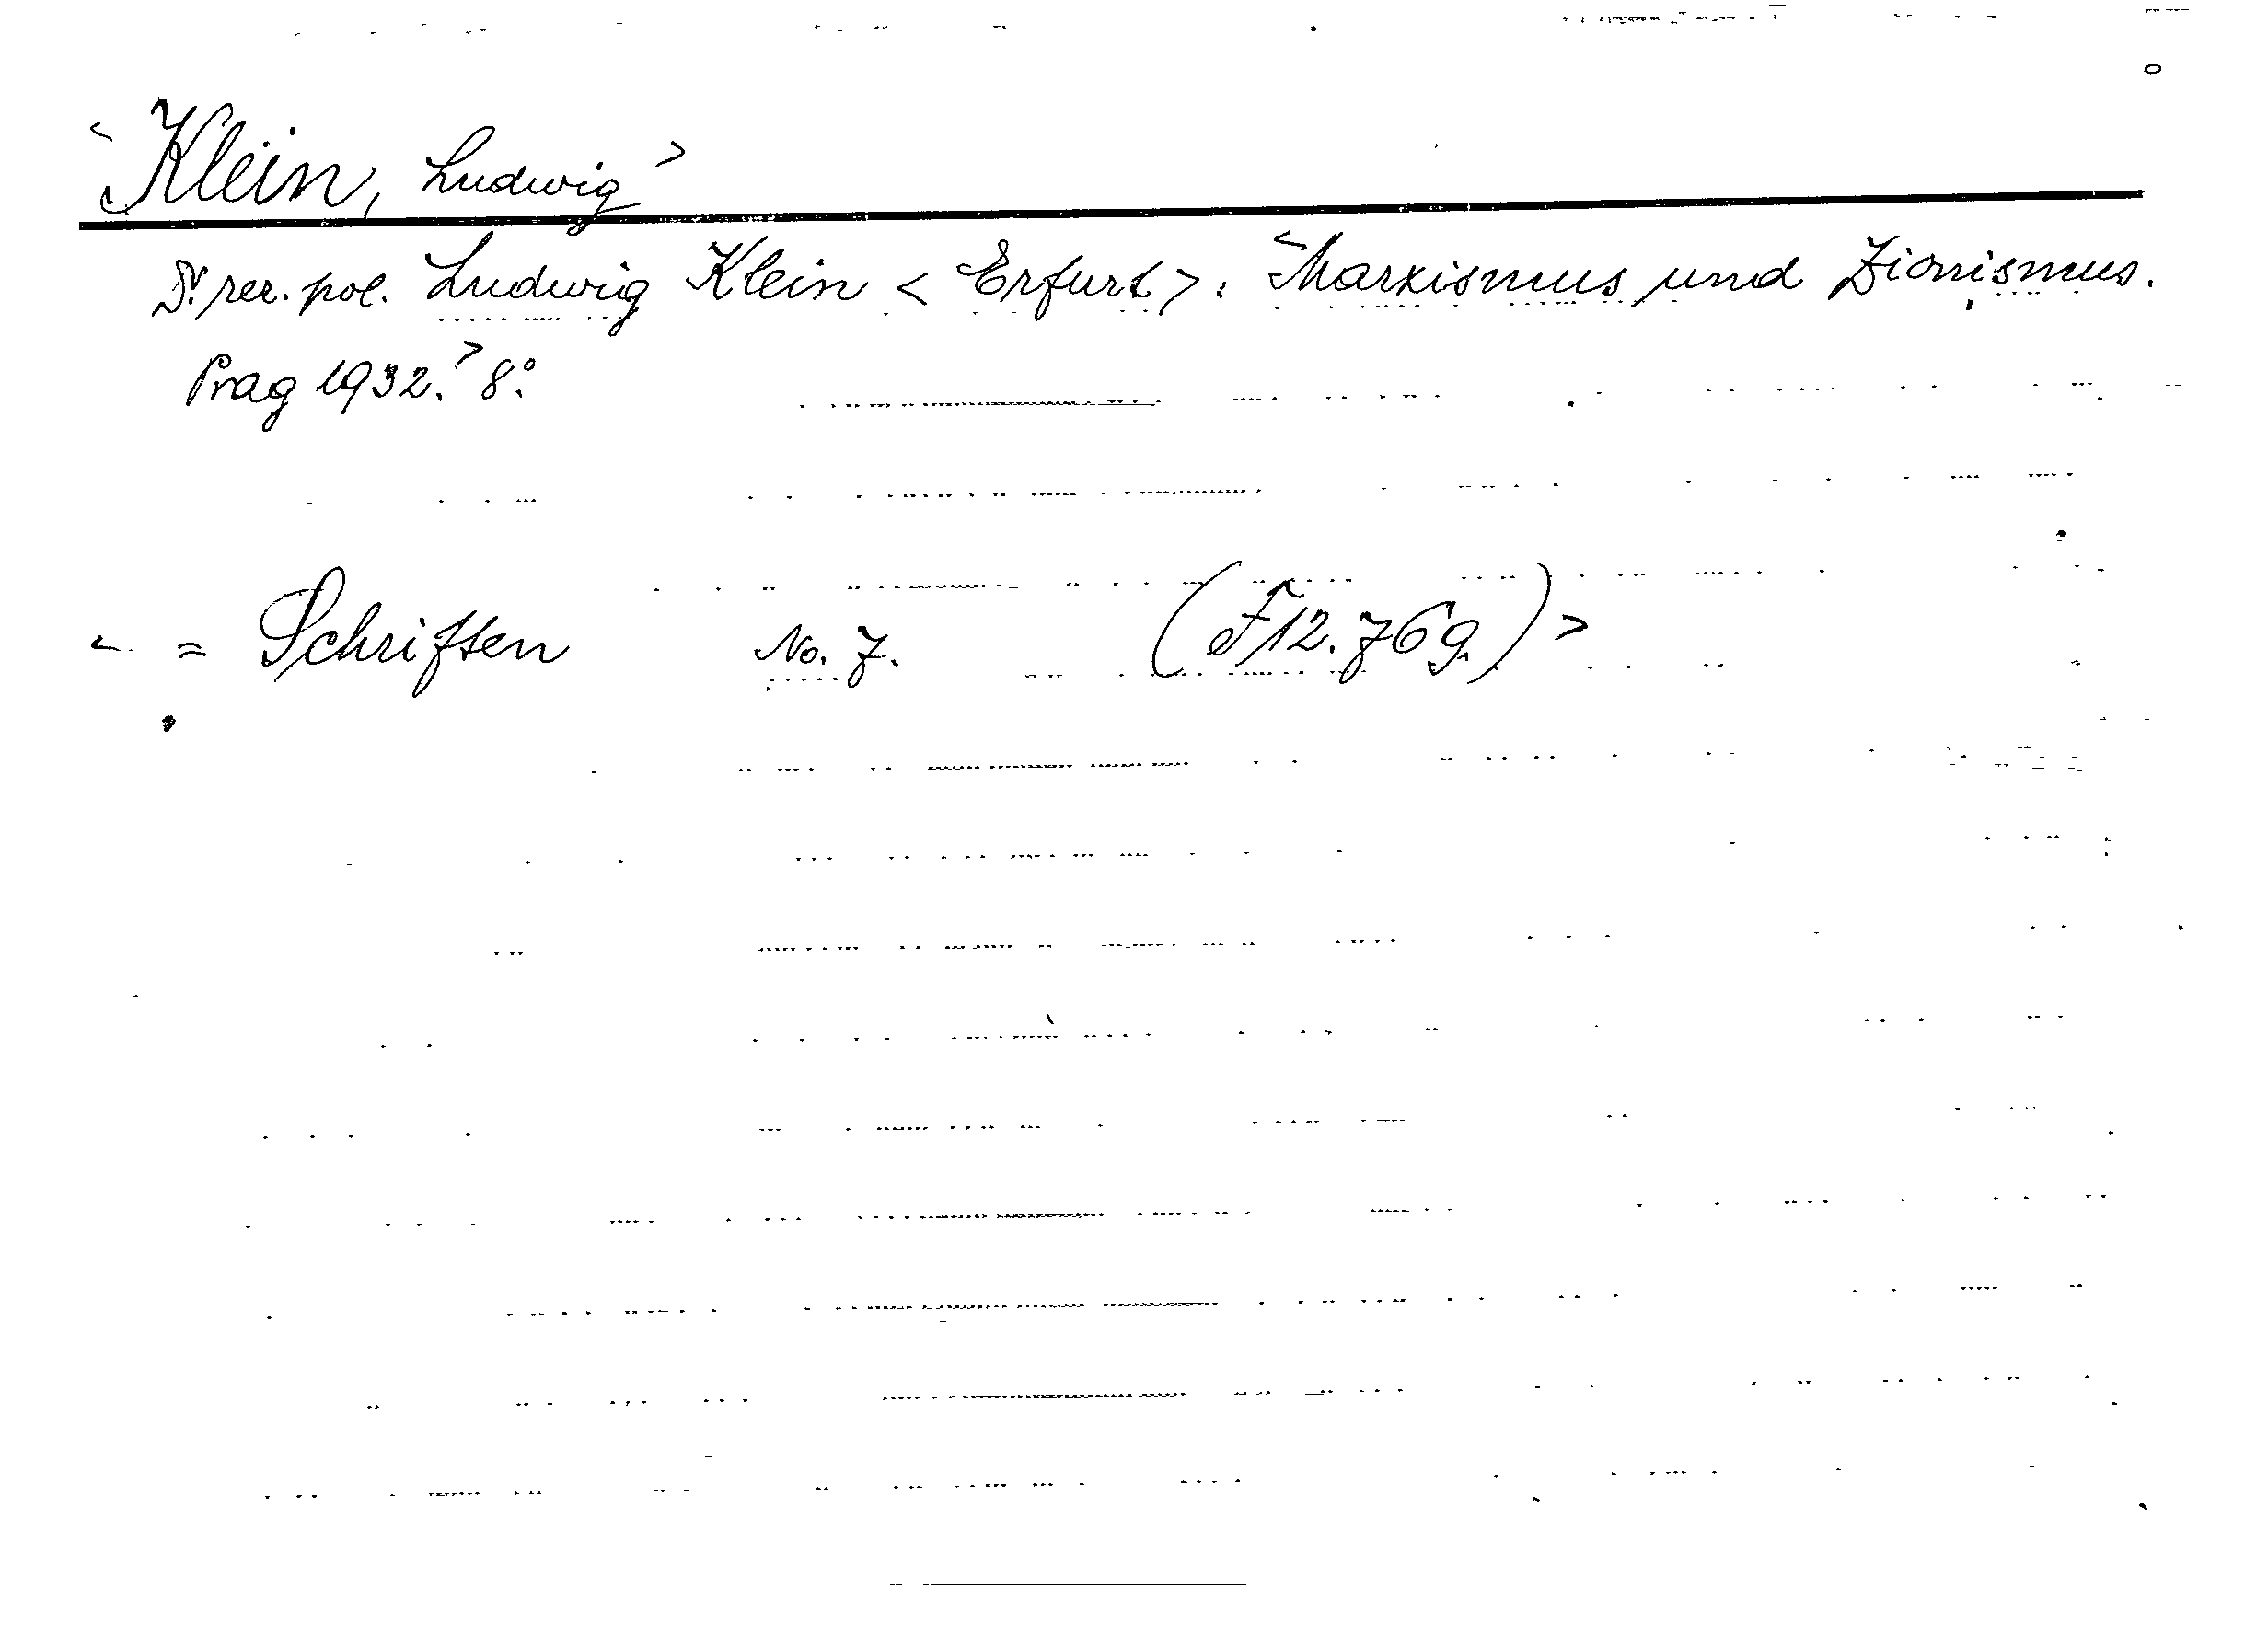 <Klein, Ludwig>
Dr. rer. pol. Ludwig Klein <Erfurt>: <Marxismus und Zionismus.
Prag 1932.> 8°.
< = Schriften No. 7. (F12.76g.)>